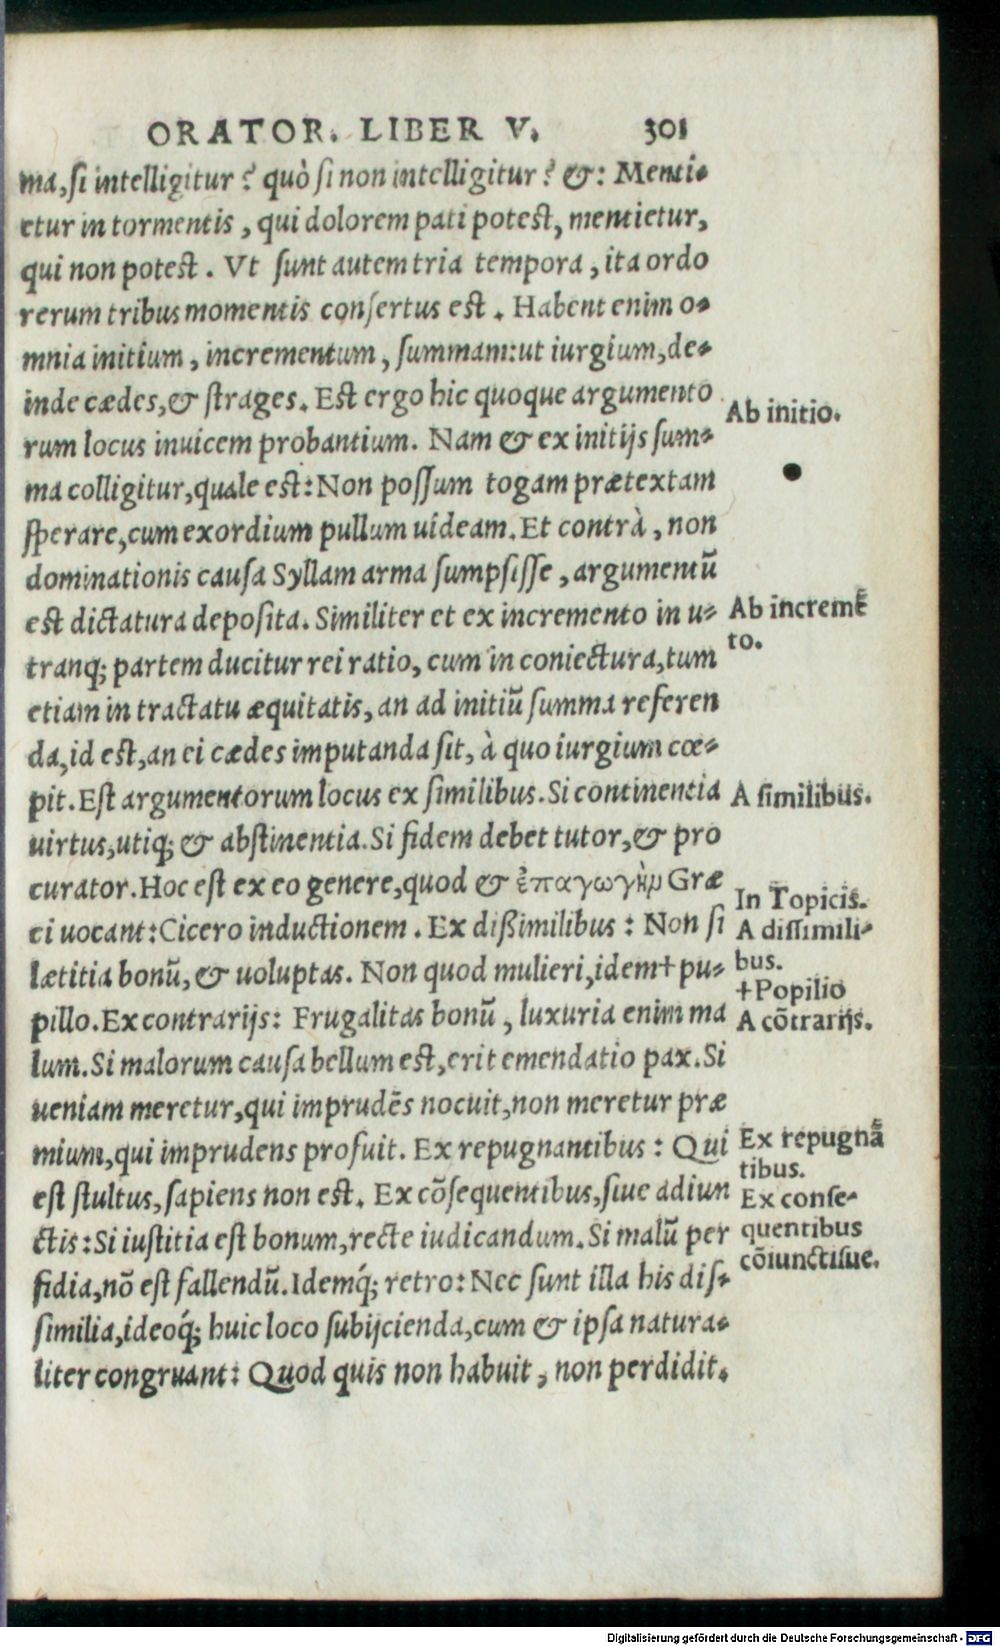 ORATOR. LIBER V. 301
ma, si intelligitur? quò si non intelligitur? &: Menti-
etur in tormentis, qui dolorem pati potest, mentietur,
qui non potest. Vt sunt autem tria tempora, ita ordo
rerum tribus momentis consertus est. Habent enim o-
mnia initium, incrementum, summam: ut iurgium, de-
inde cædes, & strages. Est ergo hic quoque argumento
rum locus inuicem probantium. Nam & ex initijs sum-
Ab initio.
ma colligitur, quale est: Non possum togam prætextam
sperare, cum exordium pullum uideam. Et contrà, non
dominationis causa Syllam arma sumpsisse, argumentũ
est dictatura deposita. Similiter et ex incremento in u-
Ab incremẽ
to.
tranq; partem ducitur rei ratio, cum in coniectura, tum
etiam in tractatu æquitatis, an ad initiũ summa referen
da, id est, an ei cædes imputanda sit, à quo iurgium cœ-
pit. Est argumentorum locus ex similibus. Si continentia
A similibus.
uirtus, utiq; & abstinentia. Si fidem debet tutor, & pro
curator. Hoc est ex eo genere, quod & ἐπαγωγὴν Græ
In Topicis.
ci uocant: Cicero inductionem. Ex dißimilibus: Non si
A dissimili-
bus.
lætitia bonũ, & uoluptas. Non quod mulieri, idem + pu-
+Popilio
pillo. Ex contrarijs: Frugalitas bonũ, luxuria enim ma
A cõtrarijs.
lum. Si malorum causa bellum est, erit emendatio pax. Si
ueniam meretur, qui imprudẽs nocuit, non meretur præ
mium, qui imprudens profuit. Ex repugnantibus: Qui
Ex repugnã
tibus.
est stultus, sapiens non est. Ex cõsequentibus, siue adiun
Ex conse-
quentibus
cõiunctisue.
ctis: Si iustitia est bonum, recte iudicandum. Si malũ per
fidia, nõ est fallendũ. Idemq́; retro: Nec sunt illa his dis-
similia, ideoq́; huic loco subijcienda, cum & ipsa natura-
liter congruant: Quod quis non habuit, non perdidit.
Digitalisierung gefördert durch die Deutsche Forschungsgemeinschaft - DFG